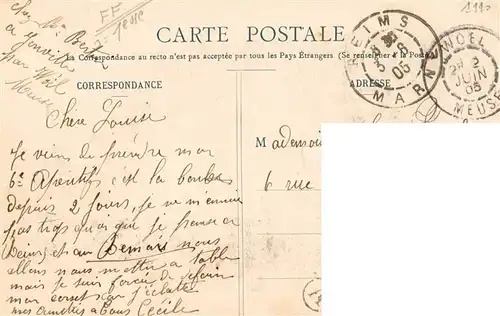 chez Mr Bertin
à Jonville
par Woël
Meuse
FF
1110
CARTE POSTALE
La Correspondance au recto n'est pas acceptée par tous les Pays Étrangers (Se renseigner à la Poste)
CORRESPONDANCE
ADRESSE
REIMS
3 -6
05
MARNE
WOËL
2
JUIN
05
MEUSE
Chère Louise
Je viens de prendre mon
6e Apéritif c'est la bombe
depuis 2 jours, je ne m'ennuie
pas trop quoi que je pense a
et au Demars nous
allons nous mettre a table
mais je suis forcée de
mon corset car j'éclate
mes amitiés a tous Cécile
Mademoi
6 rue